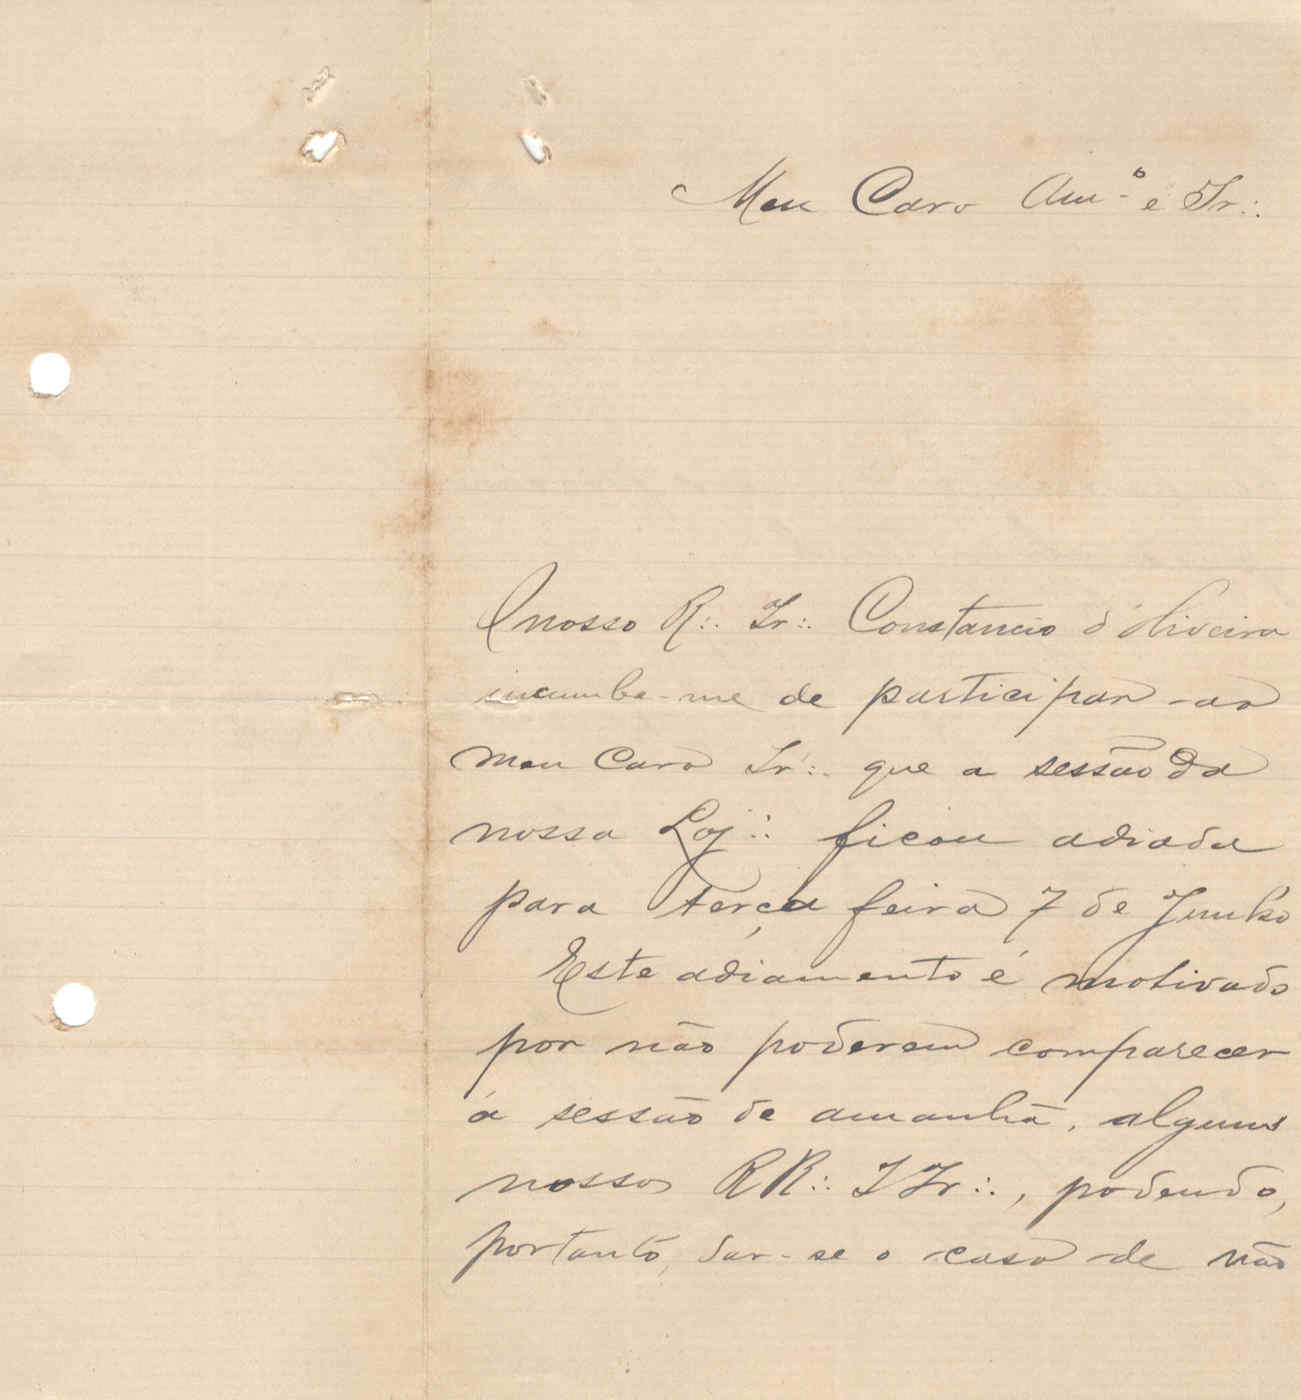 Meu Caro Am.º e Ir∴
O nosso R∴ Ir∴ Constancio d'Oliveira
incumbe-me de participar-ao
meu Caro Ir∴ que a sessão da
nossa Loj∴ ficou adiada
para terça feira 7 de Junho
Este adiamento é motivado
por não poderem comparecer
á sessão de amanhã, alguns
nossos RR∴ IIr∴, podendo,
portanto, dar-se o caso de não